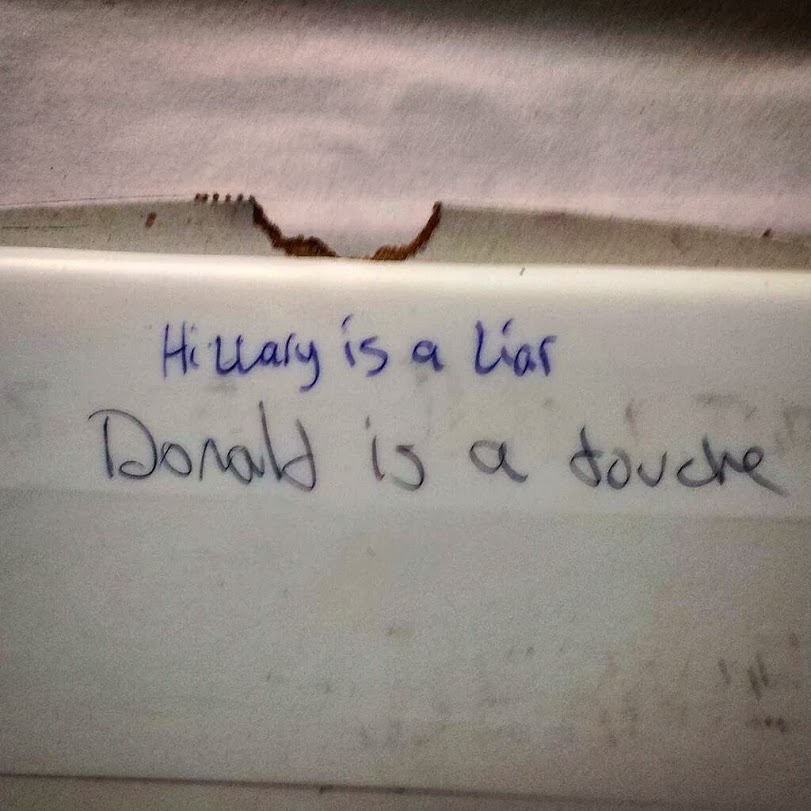 Hillary is a Liar
Donald is a douche